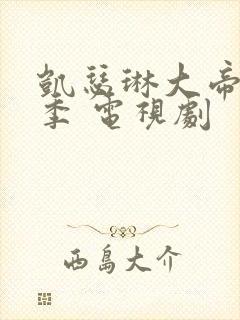 凱瑟琳大帝
季 電視劇
西島大介